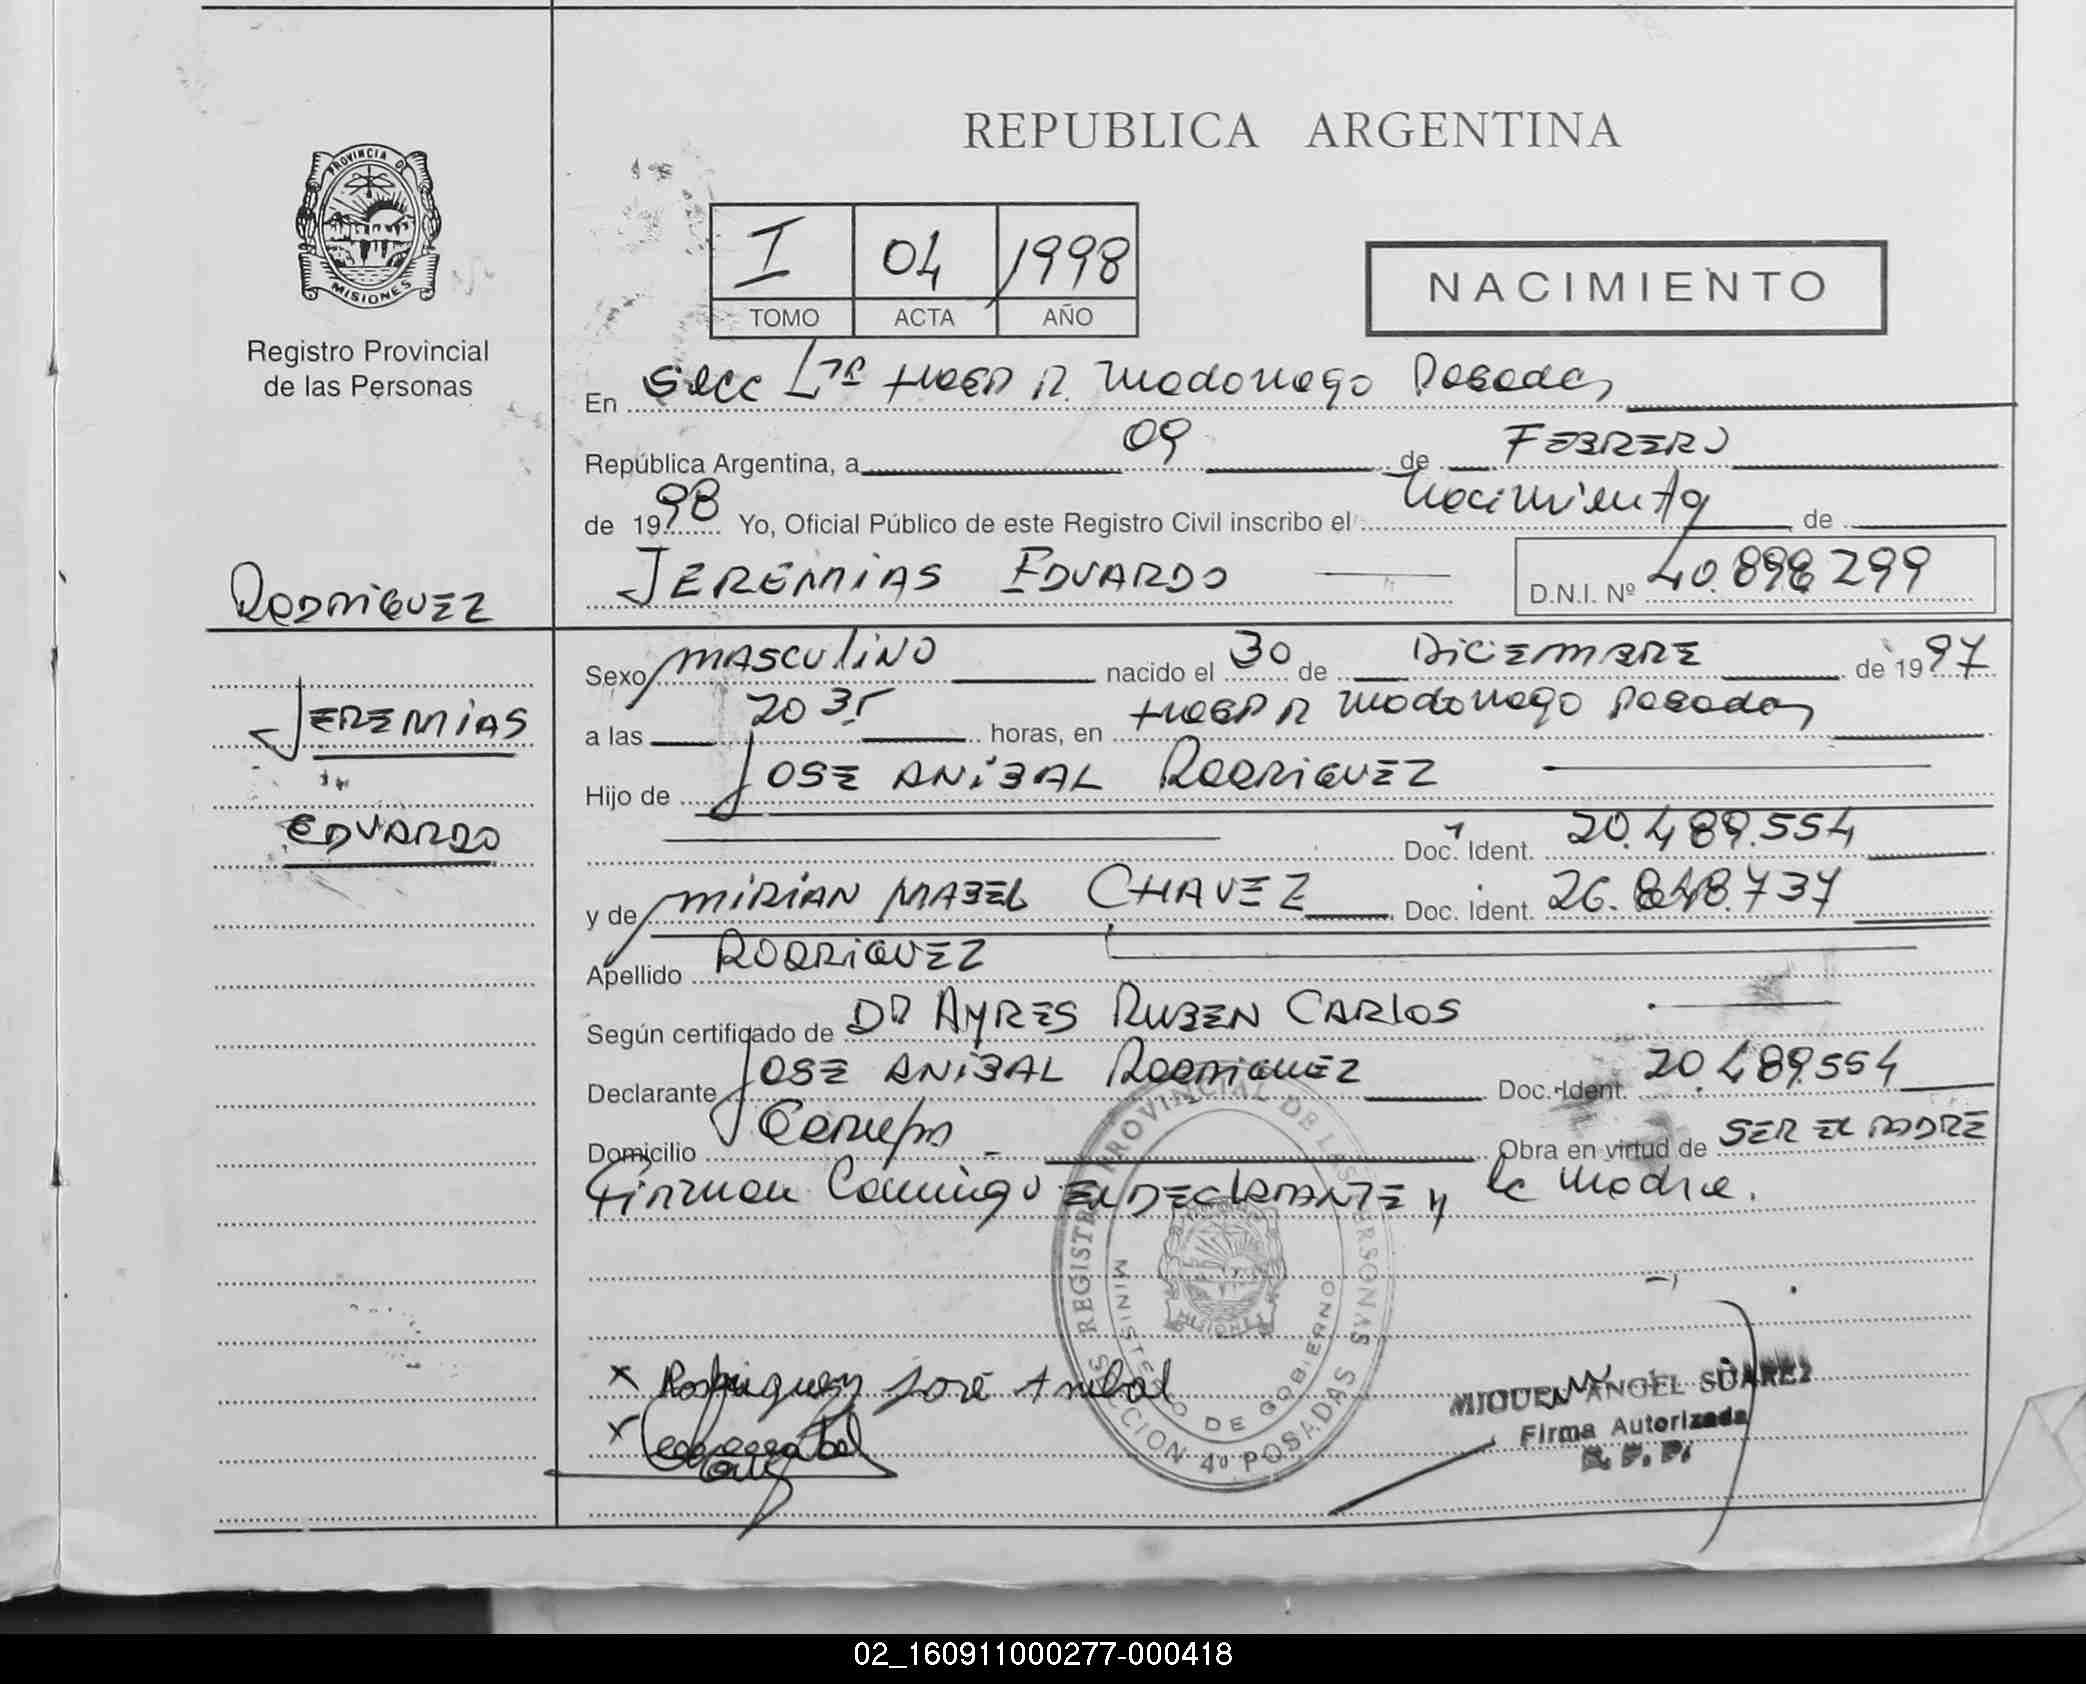 REPUBLICA ARGENTINA
PROVINCIA DE
MISIONES
Registro Provincial
de las Personas
I 04 1998
TOMO ACTA AÑO
NACIMIENTO
En Secc 4ta Hosp R. Madariaga Posadas
República Argentina, a 09 de FEBRERO
de 1998 Yo, Oficial Público de este Registro Civil inscribo el Nacimiento de
JEREMIAS EDUARDO D.N.I. Nº 40.898299
RODRIGUEZ
JEREMIAS
EDUARDO
Sexo MASCULINO nacido el 30 de DICIEMBRE de 1997
a las 20 35 horas, en HOSP R Madariaga Posadas
Hijo de JOSE ANIBAL RODRIGUEZ
Doc. Ident. 20.489.554
y de MIRIAN MABEL CHAVEZ Doc. Ident. 26.848.737
Apellido RODRIGUEZ
Según certificado de DR AYRES RUBEN CARLOS
Declarante JOSE ANIBAL RODRIGUEZ Doc. Ident. 20.489.554
Domicilio Obra en virtud de SER EL PADRE
Firman Conmigo EL DECLARANTE y la Madre.
REGISTRO PROVINCIAL DE LAS PERSONAS
MINISTERIO DE GOBIERNO
SECCION 4º POSADAS
MISIONES
x Rodriguez José Anibal
x
MIGUEL ANGEL SUAREZ
Firma Autorizada
R. P. P.
02_160911000277-000418